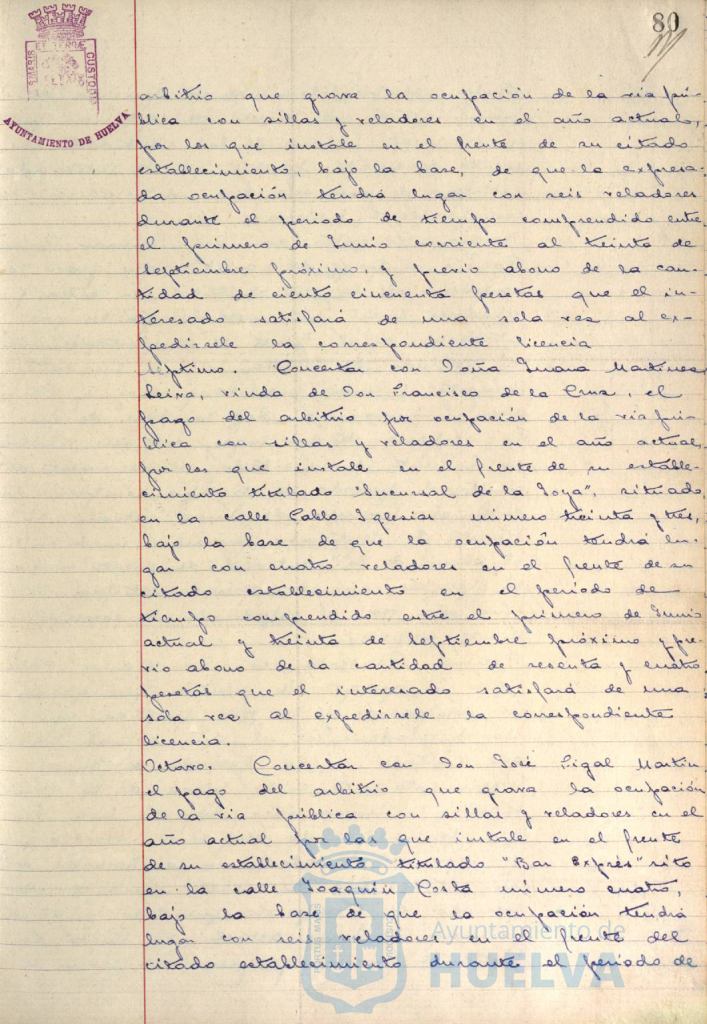 80
AYUNTAMIENTO DE HUELVA
arbitrio que grava la ocupación de la via pú-
blica con sillas y veladores en el año actual,
por los que instale en el frente de su citado
establecimiento, bajo la base, de que la expresa-
da ocupación tendrá lugar con seis veladores
durante el periodo de tiempo comprendido entre
el primero de Junio corriente al treinta de
Septiembre próximo, y previo abono de la can-
tidad de ciento cincuenta pesetas que el in-
teresado satisfará de una sola vez al ex-
pedirsele la correspondiente licencia
Séptimo. Concertar con Doña Juana Martínez
Leiva, viuda de Don Francisco de la Cruz, el
pago del arbitrio por ocupación de la via pú-
blica con sillas y veladores en el año actual,
por los que instale en el frente de su estable-
cimiento titulado "Sucursal de la Joya", situado
en la calle Pablo Iglesias número treinta y tres,
bajo la base de que la ocupación tendrá lu-
gar con cuatro veladores en el frente de su
citado establecimiento en el periodo de
tiempo comprendido entre el primero de Junio
actual y treinta de Septiembre próximo y pre-
vio abono de la cantidad de sesenta y cuatro
pesetas que el interesado satisfará de una
sola vez al expedirsele la correspondiente
licencia.
Octavo. Concertar con Don José Pigal Martín
el pago del arbitrio que grava la ocupación
de la via pública con sillas y veladores en el
año actual por las que instale en el frente
de su establecimiento titulado "Bar Exprés" sito
en la calle Joaquín Costa número cuatro,
bajo la base de que la ocupación tendrá
lugar con seis veladores en el frente del
citado establecimiento durante el periodo de
Ayuntamiento de
HUELVA